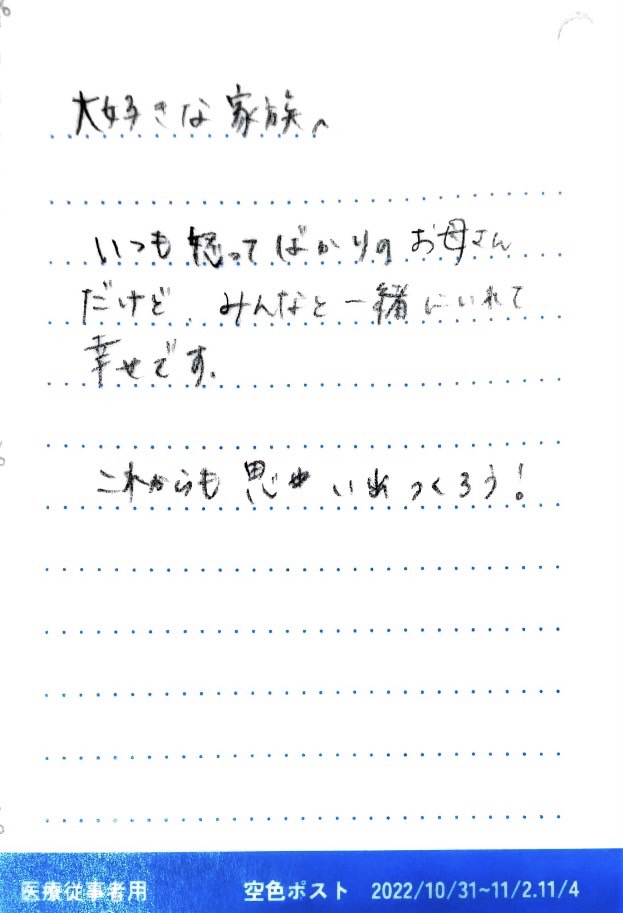 大好きな家族へ
いつも怒ってばかりのお母さん
だけど、みんなと一緒にいれて
幸せです。
これからも思い出つくろう!
医療従事者用 空色ポスト 2022/10/31~11/2.11/4